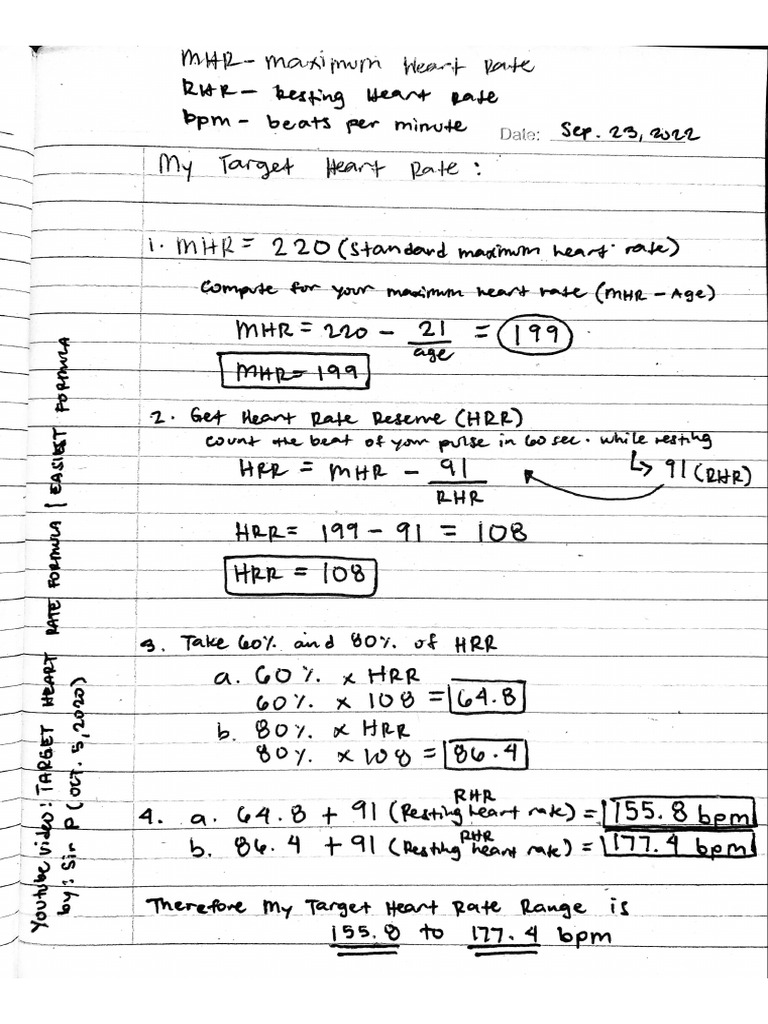 MHR - Maximum Heart Rate
RHR - Resting Heart Rate
bpm - beats per minute
Date: Sep. 23, 2022
My Target Heart Rate :
1. MHR = 220 (Standard maximum heart rate)
Compute for your maximum heart rate (MHR - Age)
MHR = 220 - 21 = 199
age
MHR = 199
2. Get Heart Rate Reserve (HRR)
count the beat of your pulse in 60 sec. while resting
HRR = MHR - 91
RHR
91 (RHR)
HRR = 199 - 91 = 108
HRR = 108
3. Take 60% and 80% of HRR
a. 60% x HRR
60% x 108 = 64.8
b. 80% x HRR
80% x 108 = 86.4
RHR
4. a. 64.8 + 91 (Resting heart rate) = 155.8 bpm
RHR
b. 86.4 + 91 (Resting heart rate) = 177.4 bpm
Therefore My Target Heart Rate Range is
155.8 to 177.4 bpm
Youtube video: TARGET HEART RATE FORMULA | EASIEST FORMULA
by: Sir P (OCT. 5, 2020)